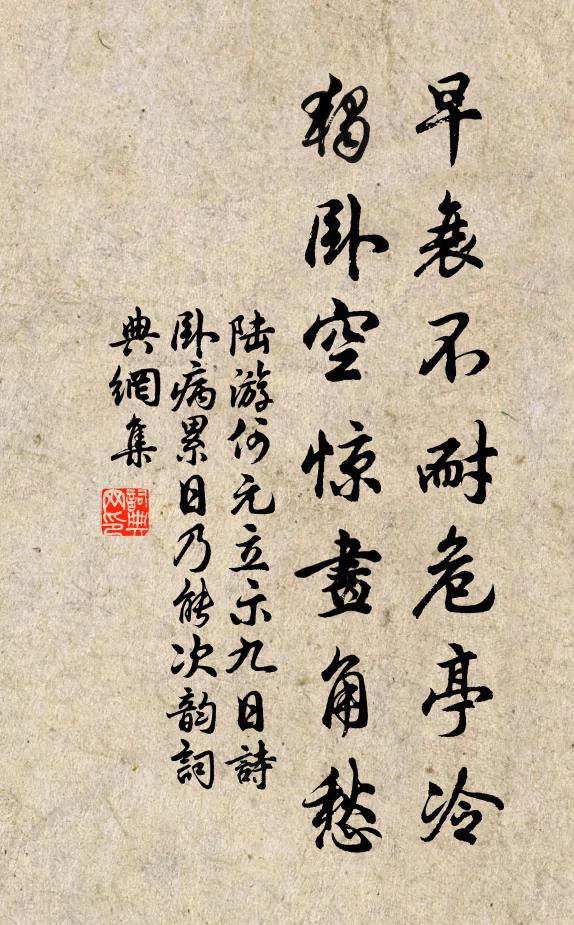 早衰不耐危亭冷
獨卧空惊畫角愁
陆游何元立示九日詩
卧病累日乃能次韵詞
典網集
詞典网印